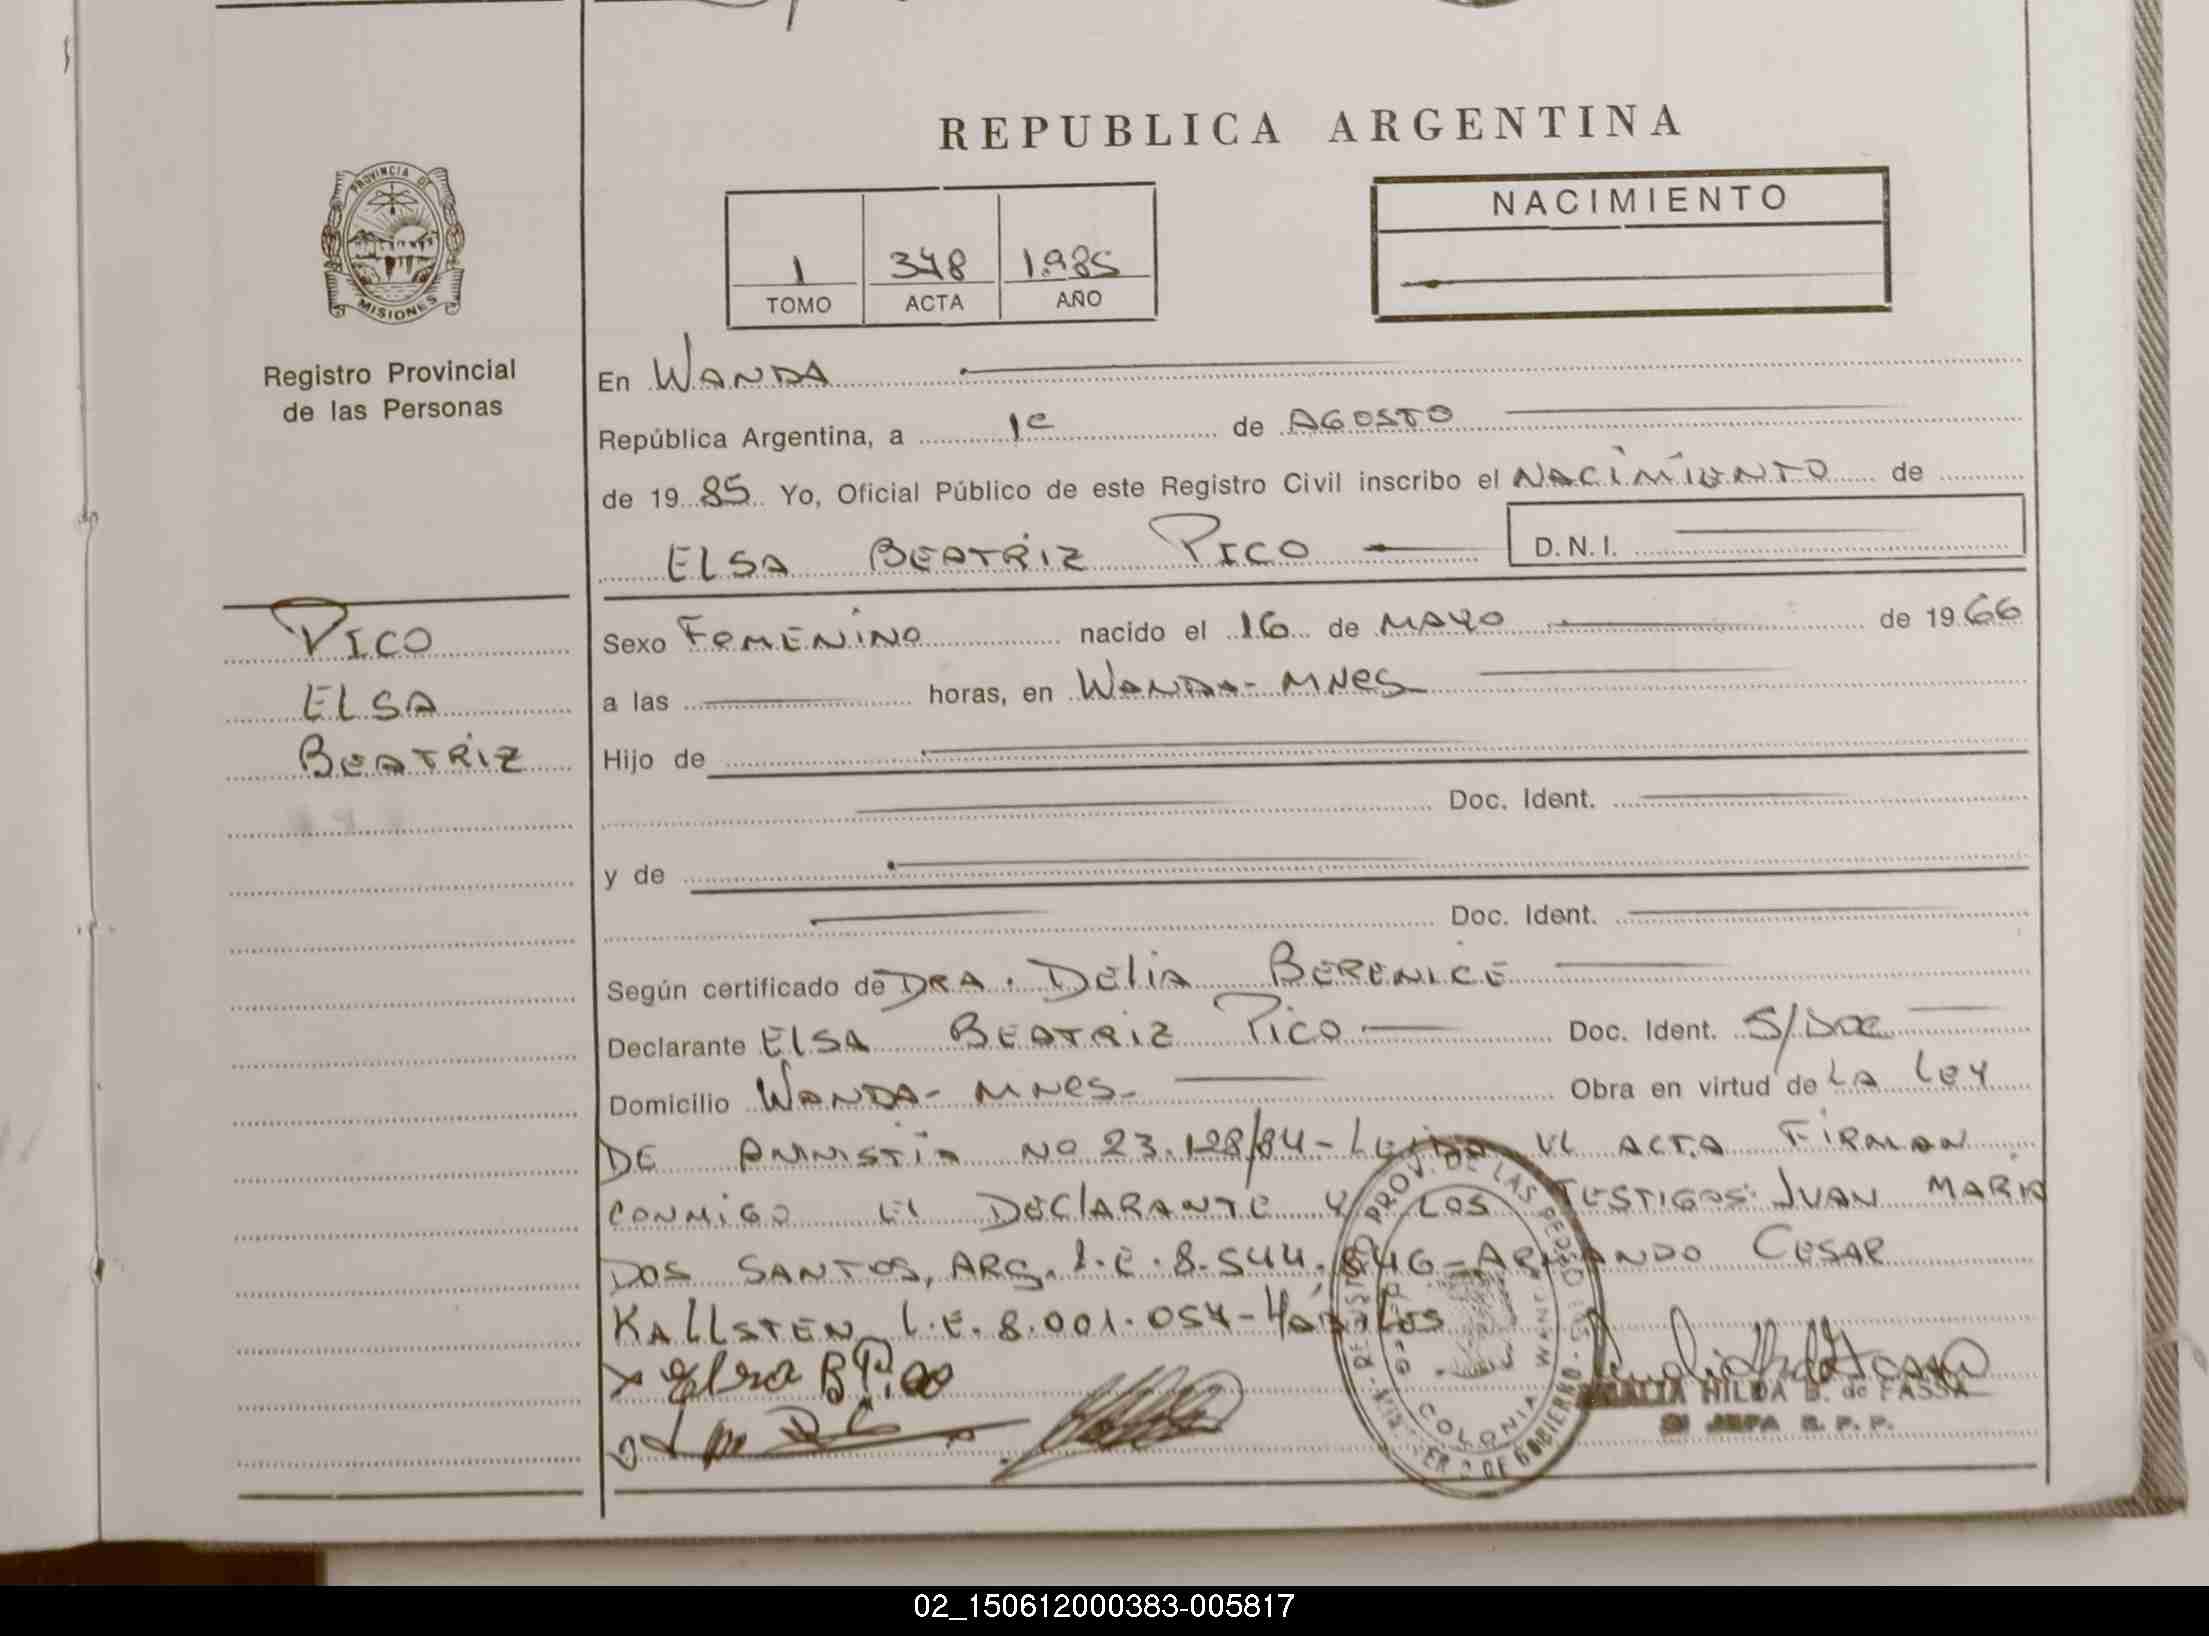 REPUBLICA ARGENTINA
PROVINCIA DE
MISIONES
Registro Provincial
de las Personas
1 348 1.985
TOMO ACTA AÑO
NACIMIENTO
En WANDA
República Argentina, a 1º de AGOSTO
de 19 85 Yo, Oficial Público de este Registro Civil inscribo el NACIMIENTO de
ELSA BEATRIZ PICO D.N.I.
PICO
ELSA
BEATRIZ
Sexo FEMENINO nacido el 16 de MAYO de 19 66
a las horas, en WANDA - MNES
Hijo de
Doc. Ident.
y de
Doc. Ident.
Según certificado de DRA. DELIA BERENICE
Declarante ELSA BEATRIZ PICO Doc. Ident. S/DOC
Domicilio WANDA - MNES - Obra en virtud de LA LEY
DE AMNISTIA NO 23.128/84 - LEIDA EL ACTA FIRMAN
CONMIGO EL DECLARANTE Y LOS TESTIGOS: JUAN MARIA
DOS SANTOS, ARG. L.E. 8.544.846 - ARMANDO CESAR
KALLSTEN L.E. 8.001.054 - HÁBILES
x Elsa B Pico
HILDA B. de FASSA
JEFA R. P. P.
COLONIA WANDA
02_150612000383-005817